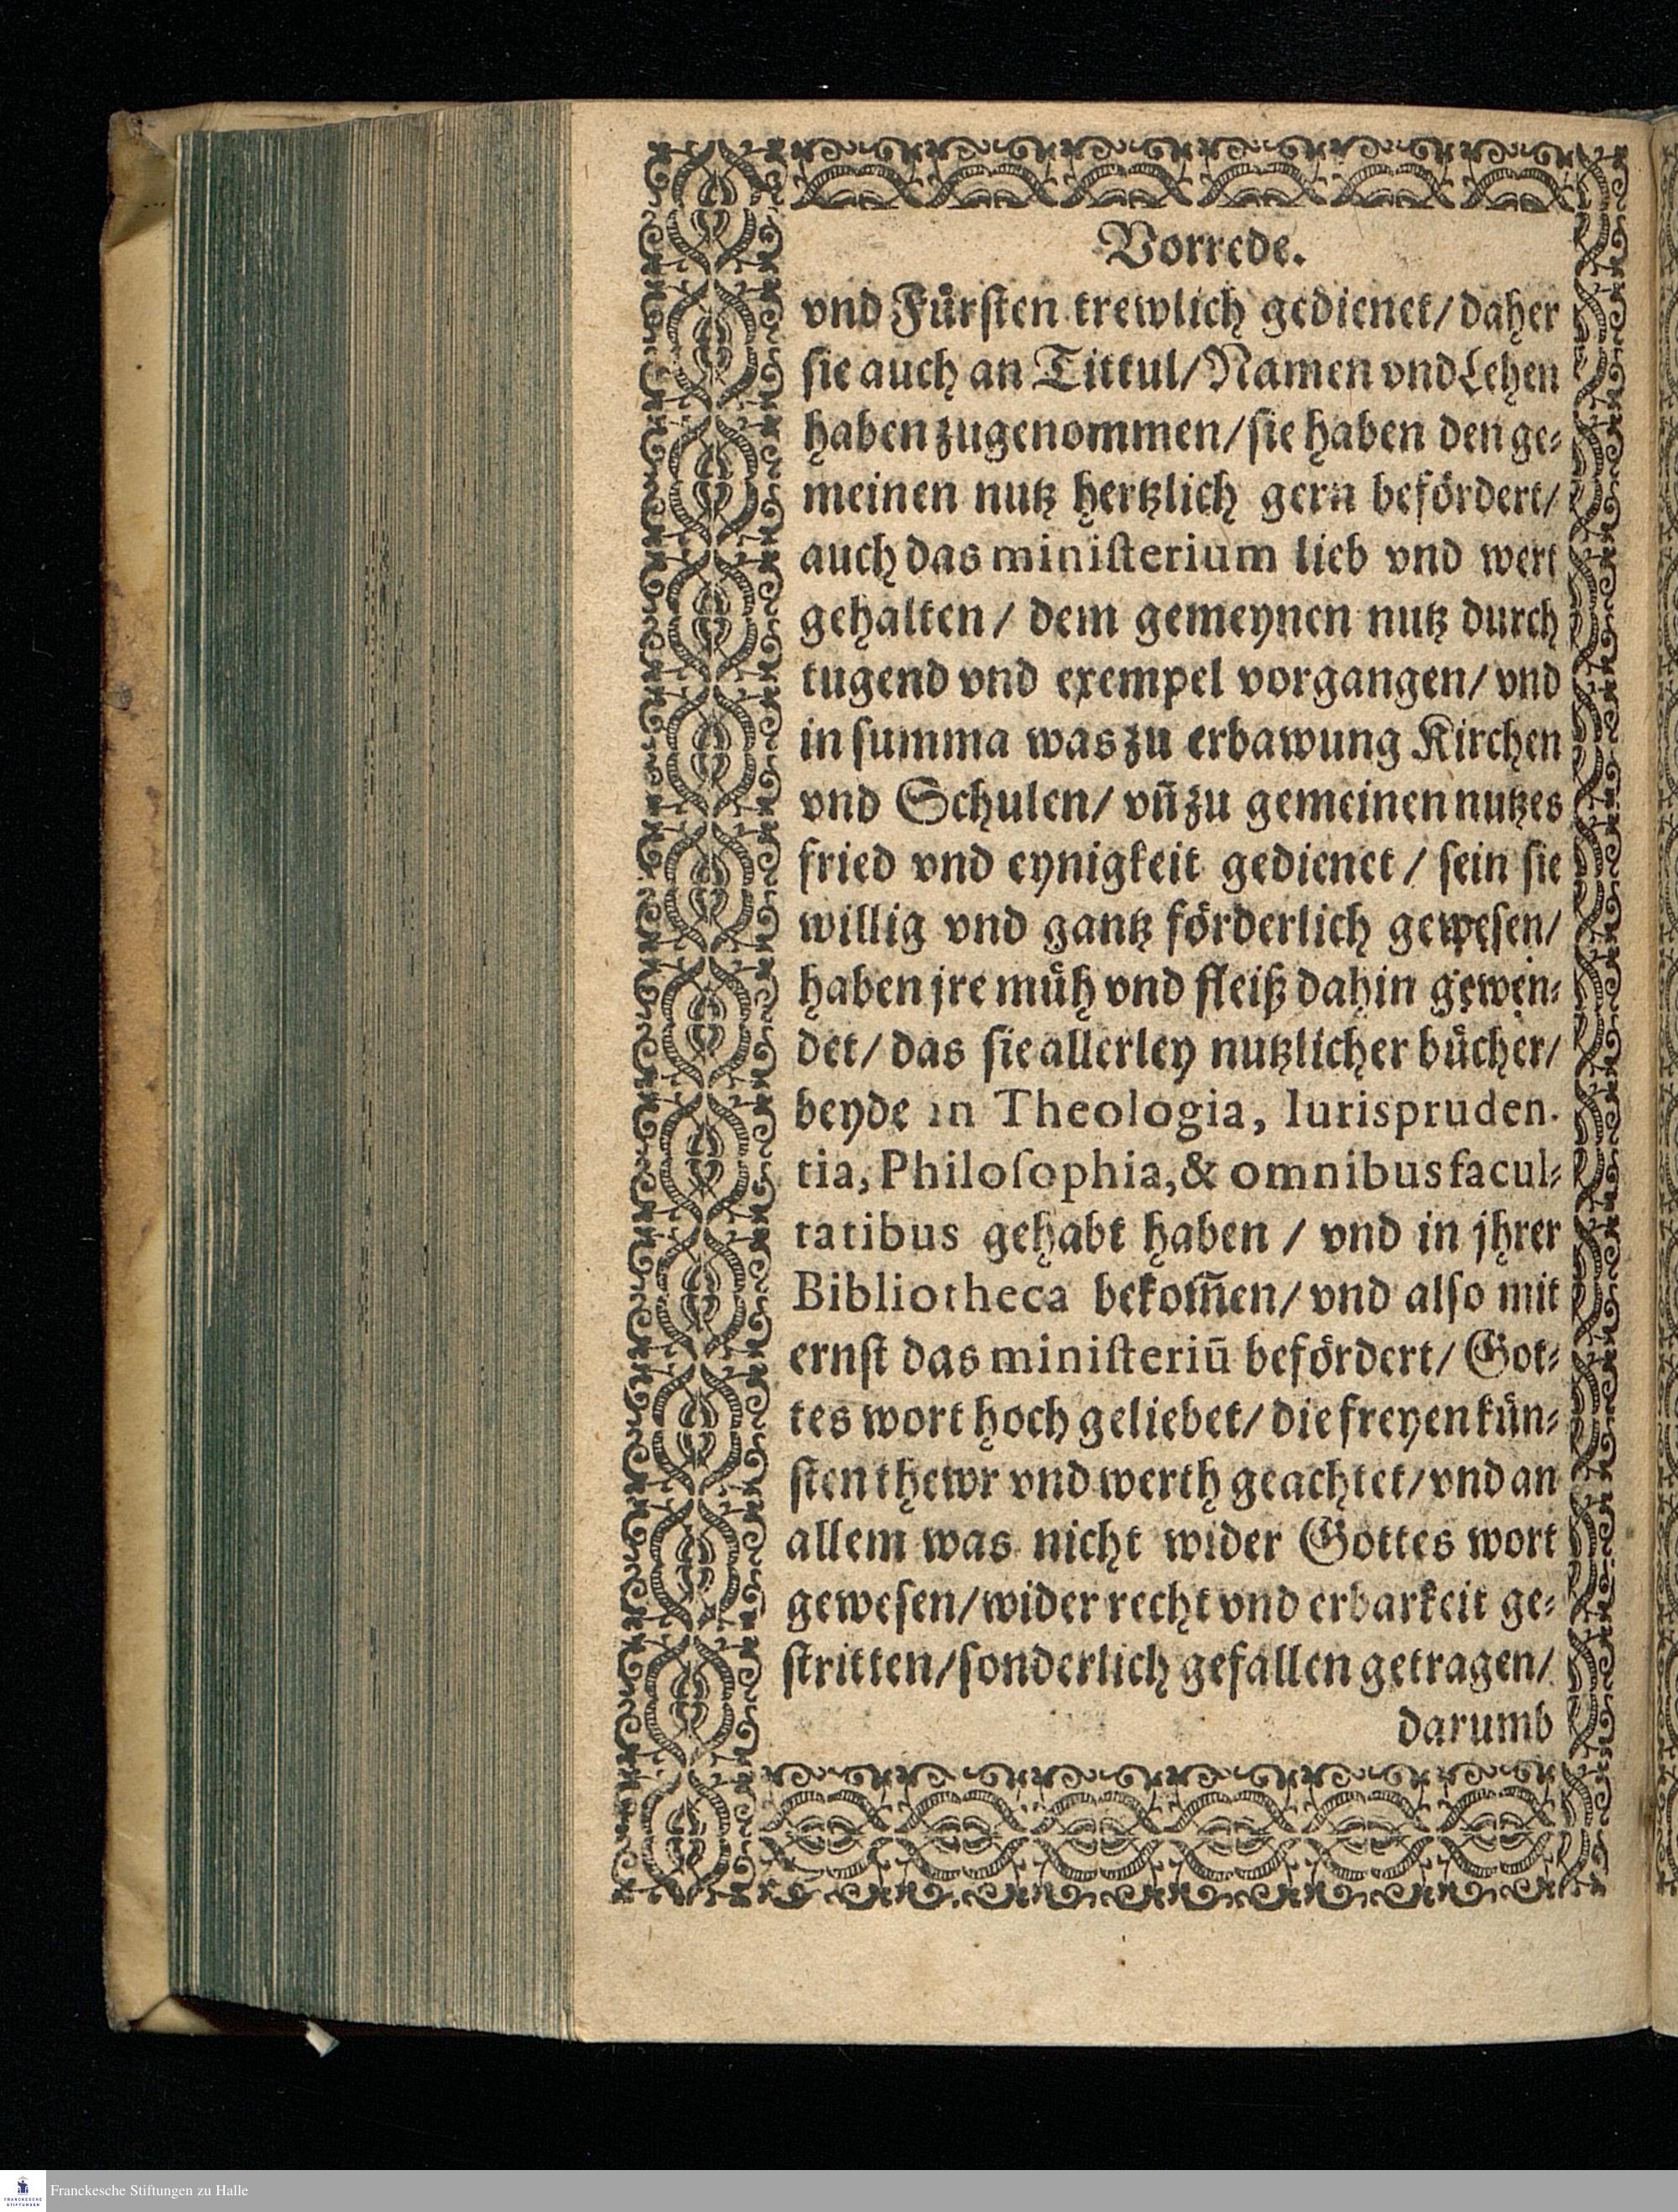 Vorrede.
vnd Fürsten trewlich gedienet/ daher
sie auch an Tittul/ Namen vnd Lehen
haben zugenommen/ sie haben den ge⸗
meinen nutz hertzlich gern befördert/
auch das miniſterium lieb vnd wert
gehalten/ dem gemeynen nutz durch
tugend vnd exempel vorgangen/ vnd
in ſumma was zu erbawung Kirchen
vnd Schulen/ vn̄ zu gemeinen nutzes
fried vnd eynigkeit gedienet / ſein ſie
willig vnd gantz förderlich geweſen/
haben jre müh vnd fleiß dahin gewen⸗
det/ das ſie allerley nutzlicher bücher/
beyde in Theologia, Iurispruden-
tia, Philoſophia, & omnibus facul⸗
tatibus gehabt haben / vnd in jhrer
Bibliotheca bekom̄en/ vnd alſo mit
ernſt das miniſteriū befördert/ Got⸗
tes wort hoch geliebet/ die freyen kün⸗
ſten thewr vnd werth geachtet/ vnd an
allem was nicht wider Gottes wort
geweſen/ wider recht vnd erbarkeit ge⸗
ſtritten/ ſonderlich gefallen getragen/
darumb
Franckesche Stiftungen zu Halle
FRANCKESCHE
STIFTUNGEN